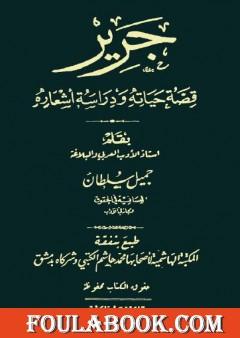 جرير
قصة حياته ودراسة أشعاره
بقلم
أستاذ الأدب العربي والبلاغة
جميل سلطان
طبع بنفقة
المكتبة الهاشمية لأصحابها محمد هاشم الكتبي وشركاه بدمشق
حقوق الكتاب محفوظة
FOULABOOK.COM